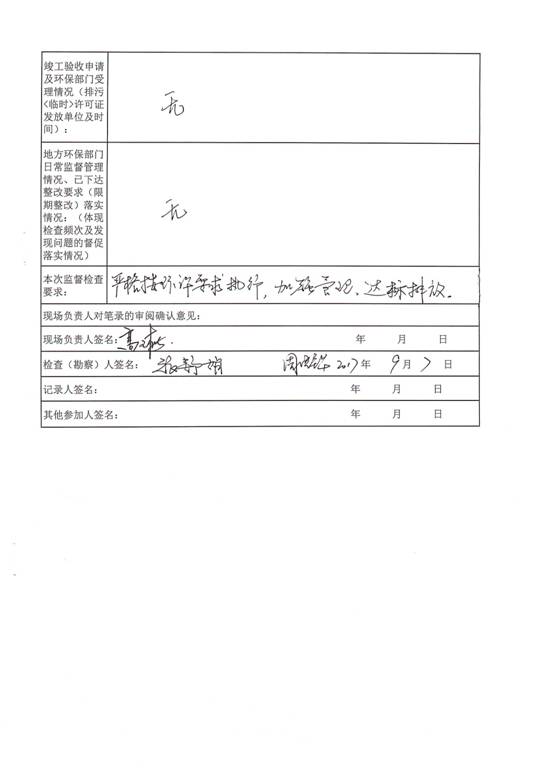 竣工验收申请
及环保部门受
理情况（排污
<临时>许可证
发放单位及时
间）：
无
地方环保部门
日常监督管理
情况、已下达
整改要求（限
期整改）落实
情况：（体现
检查频次及发
现问题的督促
落实情况）
无
本次监督检查
要求：
严格按环评要求执行，加强管理，达标排放。
现场负责人对笔录的审阅确认意见：
现场负责人签名：高 年 月 日
检查（勘察）人签名： 周 2017年 9月 7日
记录人签名： 年 月 日
其他参加人签名： 年 月 日